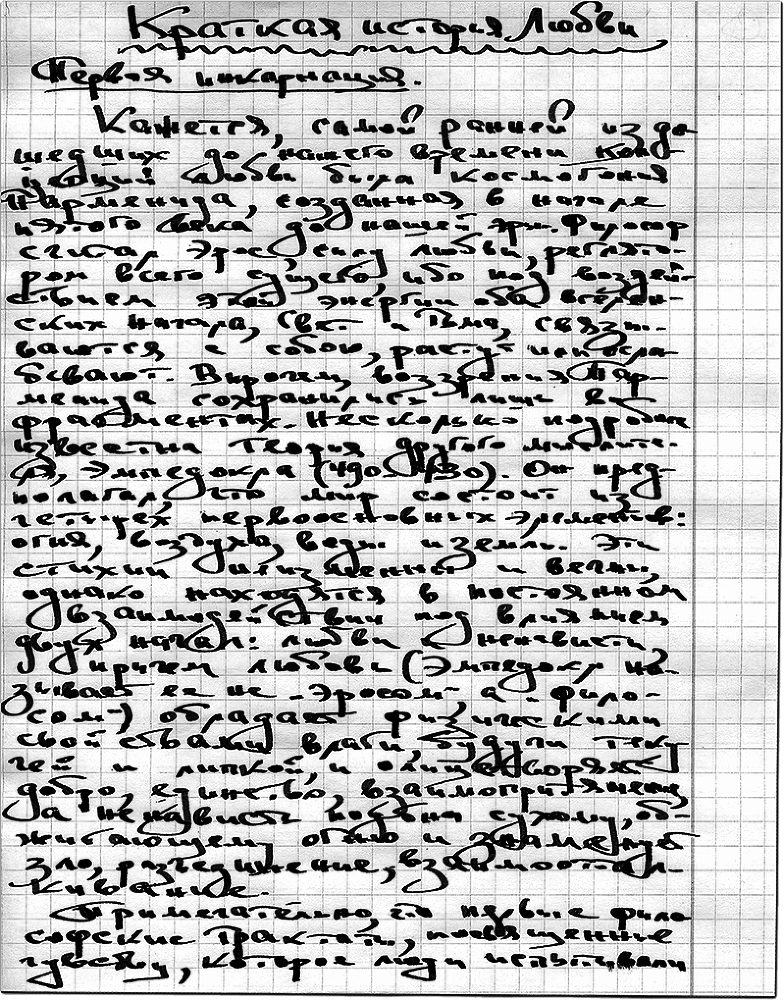 Краткая история Любви
Первая инкарнация.
Кажется, самой ранней из до-
шедших до нашего времени кон-
цепций любви была космогония
Парменида, созданная в начале
пятого века до нашей эры. Философ
считал Эрос, силу любви, регулято-
ром всего сущего, ибо под воздей-
ствием этой энергии оба вселен-
ских начала, Свет и Тьма, связы-
ваются с собою, растут или осла-
бевают. Впрочем, воззрения Пар-
менида сохранились лишь во
фрагментах. Несколько подробнее
известна теория другого мыслите-
ля, Эмпедокла (490-430). Он пред-
полагал, что мир состоит из
четырех первоосновных элементов:
огня, воздуха, воды и земли. Эти
стихии неизменны и вечны,
однако находятся в постоянном
взаимодействии под влиянием
двух начал: любви и ненависти
причем любовь (Эмпедокл на-
зывает ее не "Эросом" а "Фило-
сом") обладает физическими
свойствами влаги, будучи теку-
чей и липкой, и олицетворяет
добро, единство, взаимопритяжение,
а ненависть подобна сухому, об-
жигающему огню и знаменует
зло, разъединение, взаимооттал-
кивание.
Примечательно, что первые фило-
софские трактаты, посвященные
чувству, которое люди испытывали